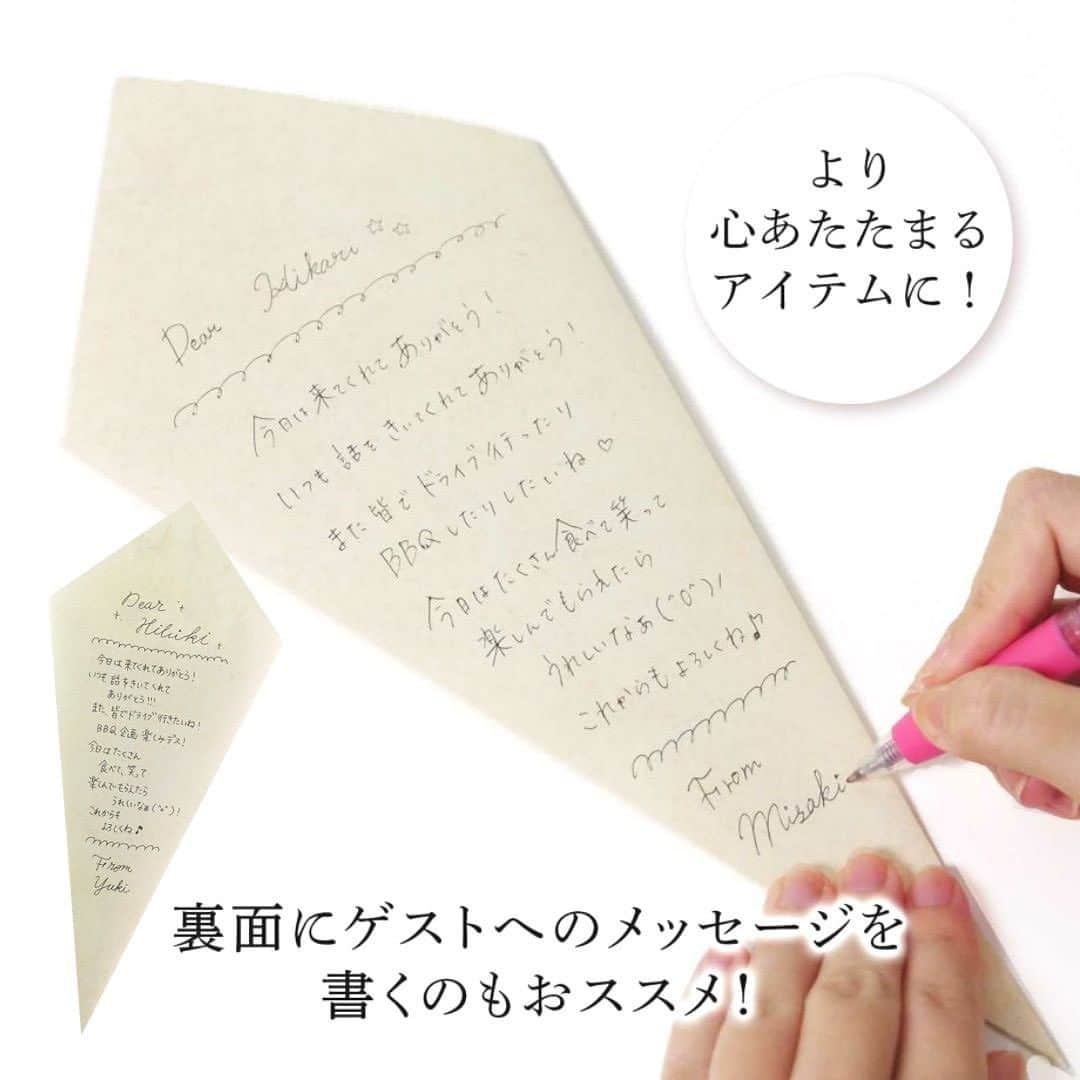 より
心あたたまる
アイテムに！
Dear Hikari ☆☆
今日は来てくれてありがとう！
いつも話をきいてくれてありがとう！
また皆でドライブ行ったり
BBQしたりしたいね♡
今日はたくさん食べて笑って
楽しんでもらえたら
うれしいなあ(^0^)!
これからもよろしくね♪
From
Misaki
Dear
Hibiki
今日は来てくれてありがとう！
いつも話をきいてくれて
ありがとう!!!
また、皆でドライブ行きたいね！
BBQ企画楽しみデス！
今日はたくさん
食べて、笑って
楽しんでもらえたら
うれしいなぁ(^o^)!
これからも
よろしくね♪
From
Yuki
裏面にゲストへのメッセージを
書くのもおススメ！